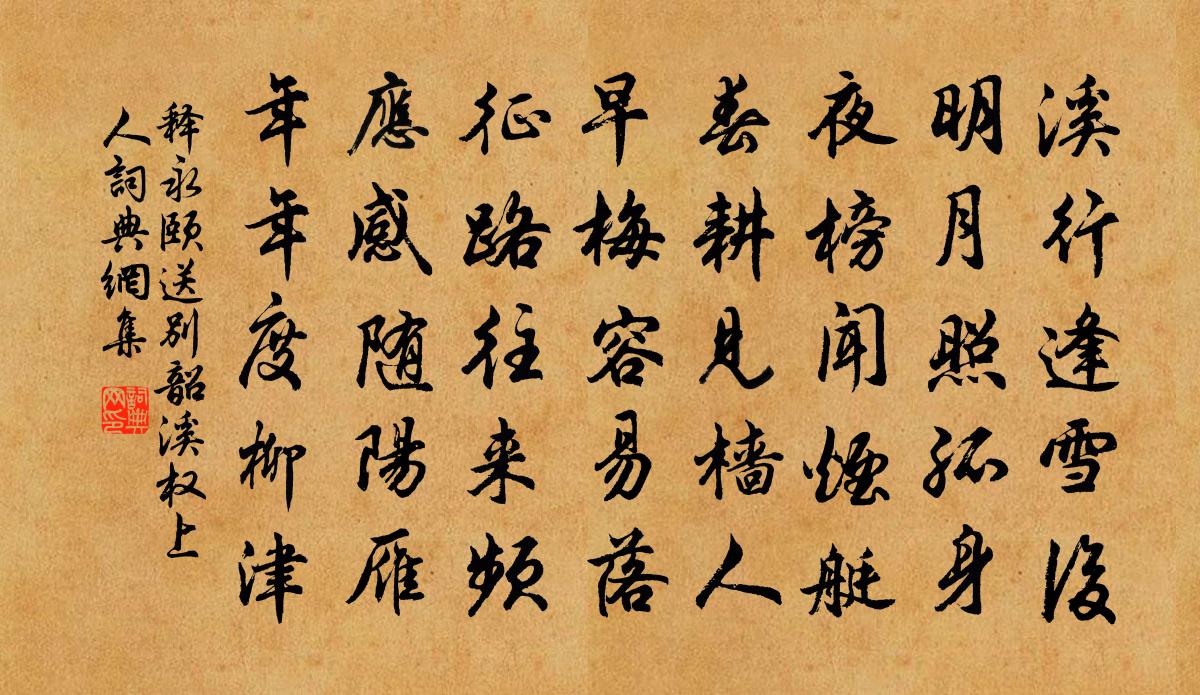 溪行逢雪後
明月照孤身
夜榜聞煙艇
春耕見樯人
早梅容易落
征路往来頻
應感随陽雁
年年度柳津
释永颐送别韶溪权上
人詞典網集
詞典网印